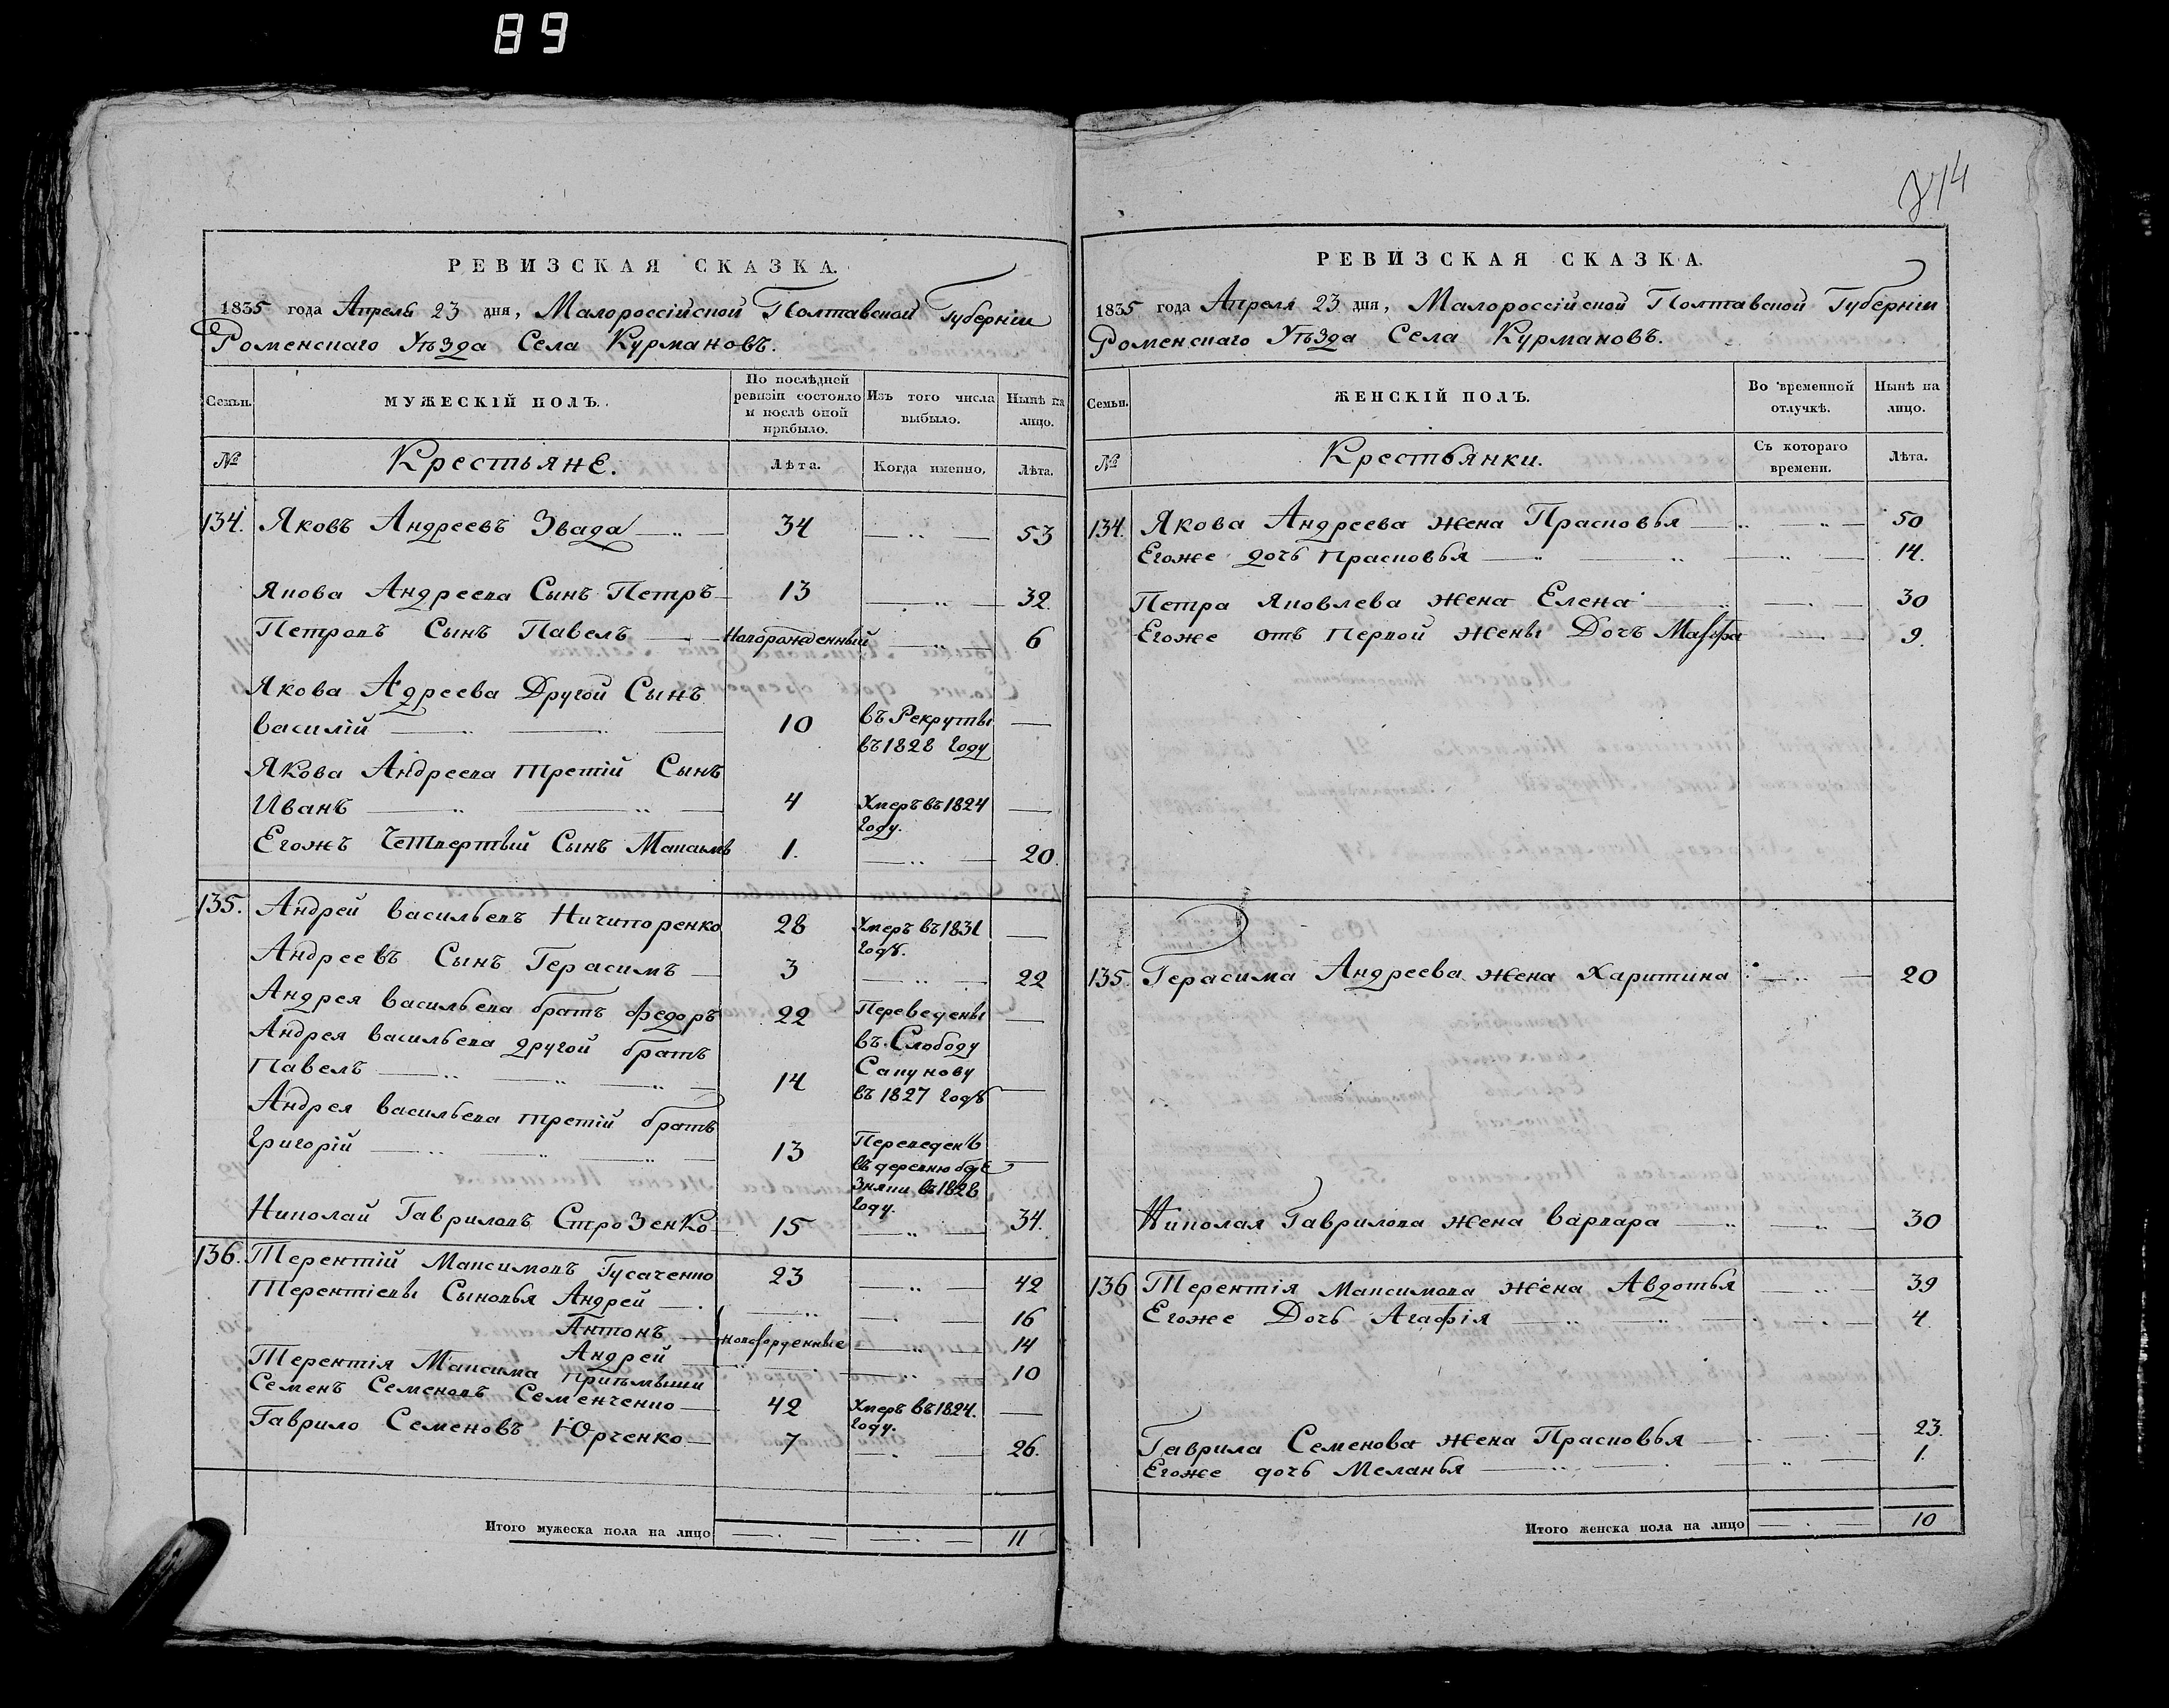 89
РЕВИЗСКАЯ СКАЗКА.
1835 года Апреля 23 дня, Малороссійской Полтавской Губерніи
Роменскаго Уѣзда Села Курмановъ.
Семьи.
МУЖЕСКІЙ ПОЛЪ.
По послѣдней
ревизіи состояло
и послѣ оной
прибыло.
Изъ того числа
выбыло.
Нынѣ на
лицо.
№
Крестьяне.
Лѣта.
Когда именно.
Лѣта.
134. Яковъ Андреевъ Звада 34 53
Якова Андреева Сынъ Петръ 13 32.
Петровъ Сынъ Павелъ Новорожденный 6
Якова Адреева Другой Сынъ
василій 10 въ Рекруты
въ 1828 году
Якова Андреева третій Сынъ
Иванъ 4 Умеръ въ 1824
году.
Егожъ Четвертый Сынъ Максимъ 1. 20.
135. Андрей васильевъ Ничипоренко 28 Умеръ въ 1831
годѣ.
Андреевъ Сынъ Герасимъ 3 22
Андрея васильева братъ Федоръ 22 Переведены
Андрея васильева другой братъ въ Слободу
Павелъ 14 Сапунову
въ 1827 годѣ
Андрея васильева третій братъ
Григорій 13 Переведенъ
въ деревню
въ 1828
году.
Николай Гавриловъ Строзенко 15 34.
136. Терентій Максимовъ Гусаченко 23 42
Терентіевы Сыновья Андрей 16
Антонъ новорожденные 14
Андрей 10
Терентія Максима пріемыши
Семенъ Семеновъ Семенченко 42 Умеръ въ 1824.
году.
Гаврило Семеновъ Юрченко 7 26.
Итого мужеска пола на лицо 11
РЕВИЗСКАЯ СКАЗКА.
1835 года Апреля 23 дня, Малороссійской Полтавской Губерніи
Роменскаго Уѣзда Села Курмановъ.
Семьи.
ЖЕНСКІЙ ПОЛЪ.
Во временной
отлучкѣ.
Нынѣ на
лицо.
№
Крестьянки.
Съ котораго
времени.
Лѣта.
134. Якова Андреева жена Прасковья 50
Егоже дочь Прасковья 14.
Петра Яковлева жена Елена 30
Егоже отъ первой жены Дочь Марфа 9.
135. Герасима Андреева жена Харитина 20
Николая Гаврилова жена варвара 30
136 Терентія Максимова жена Авдотья 39
Егоже Дочь Агафія 4.
Гаврила Семенова жена Прасковья 23.
Егоже дочь Меланья 1.
Итого женска пола на лицо 10